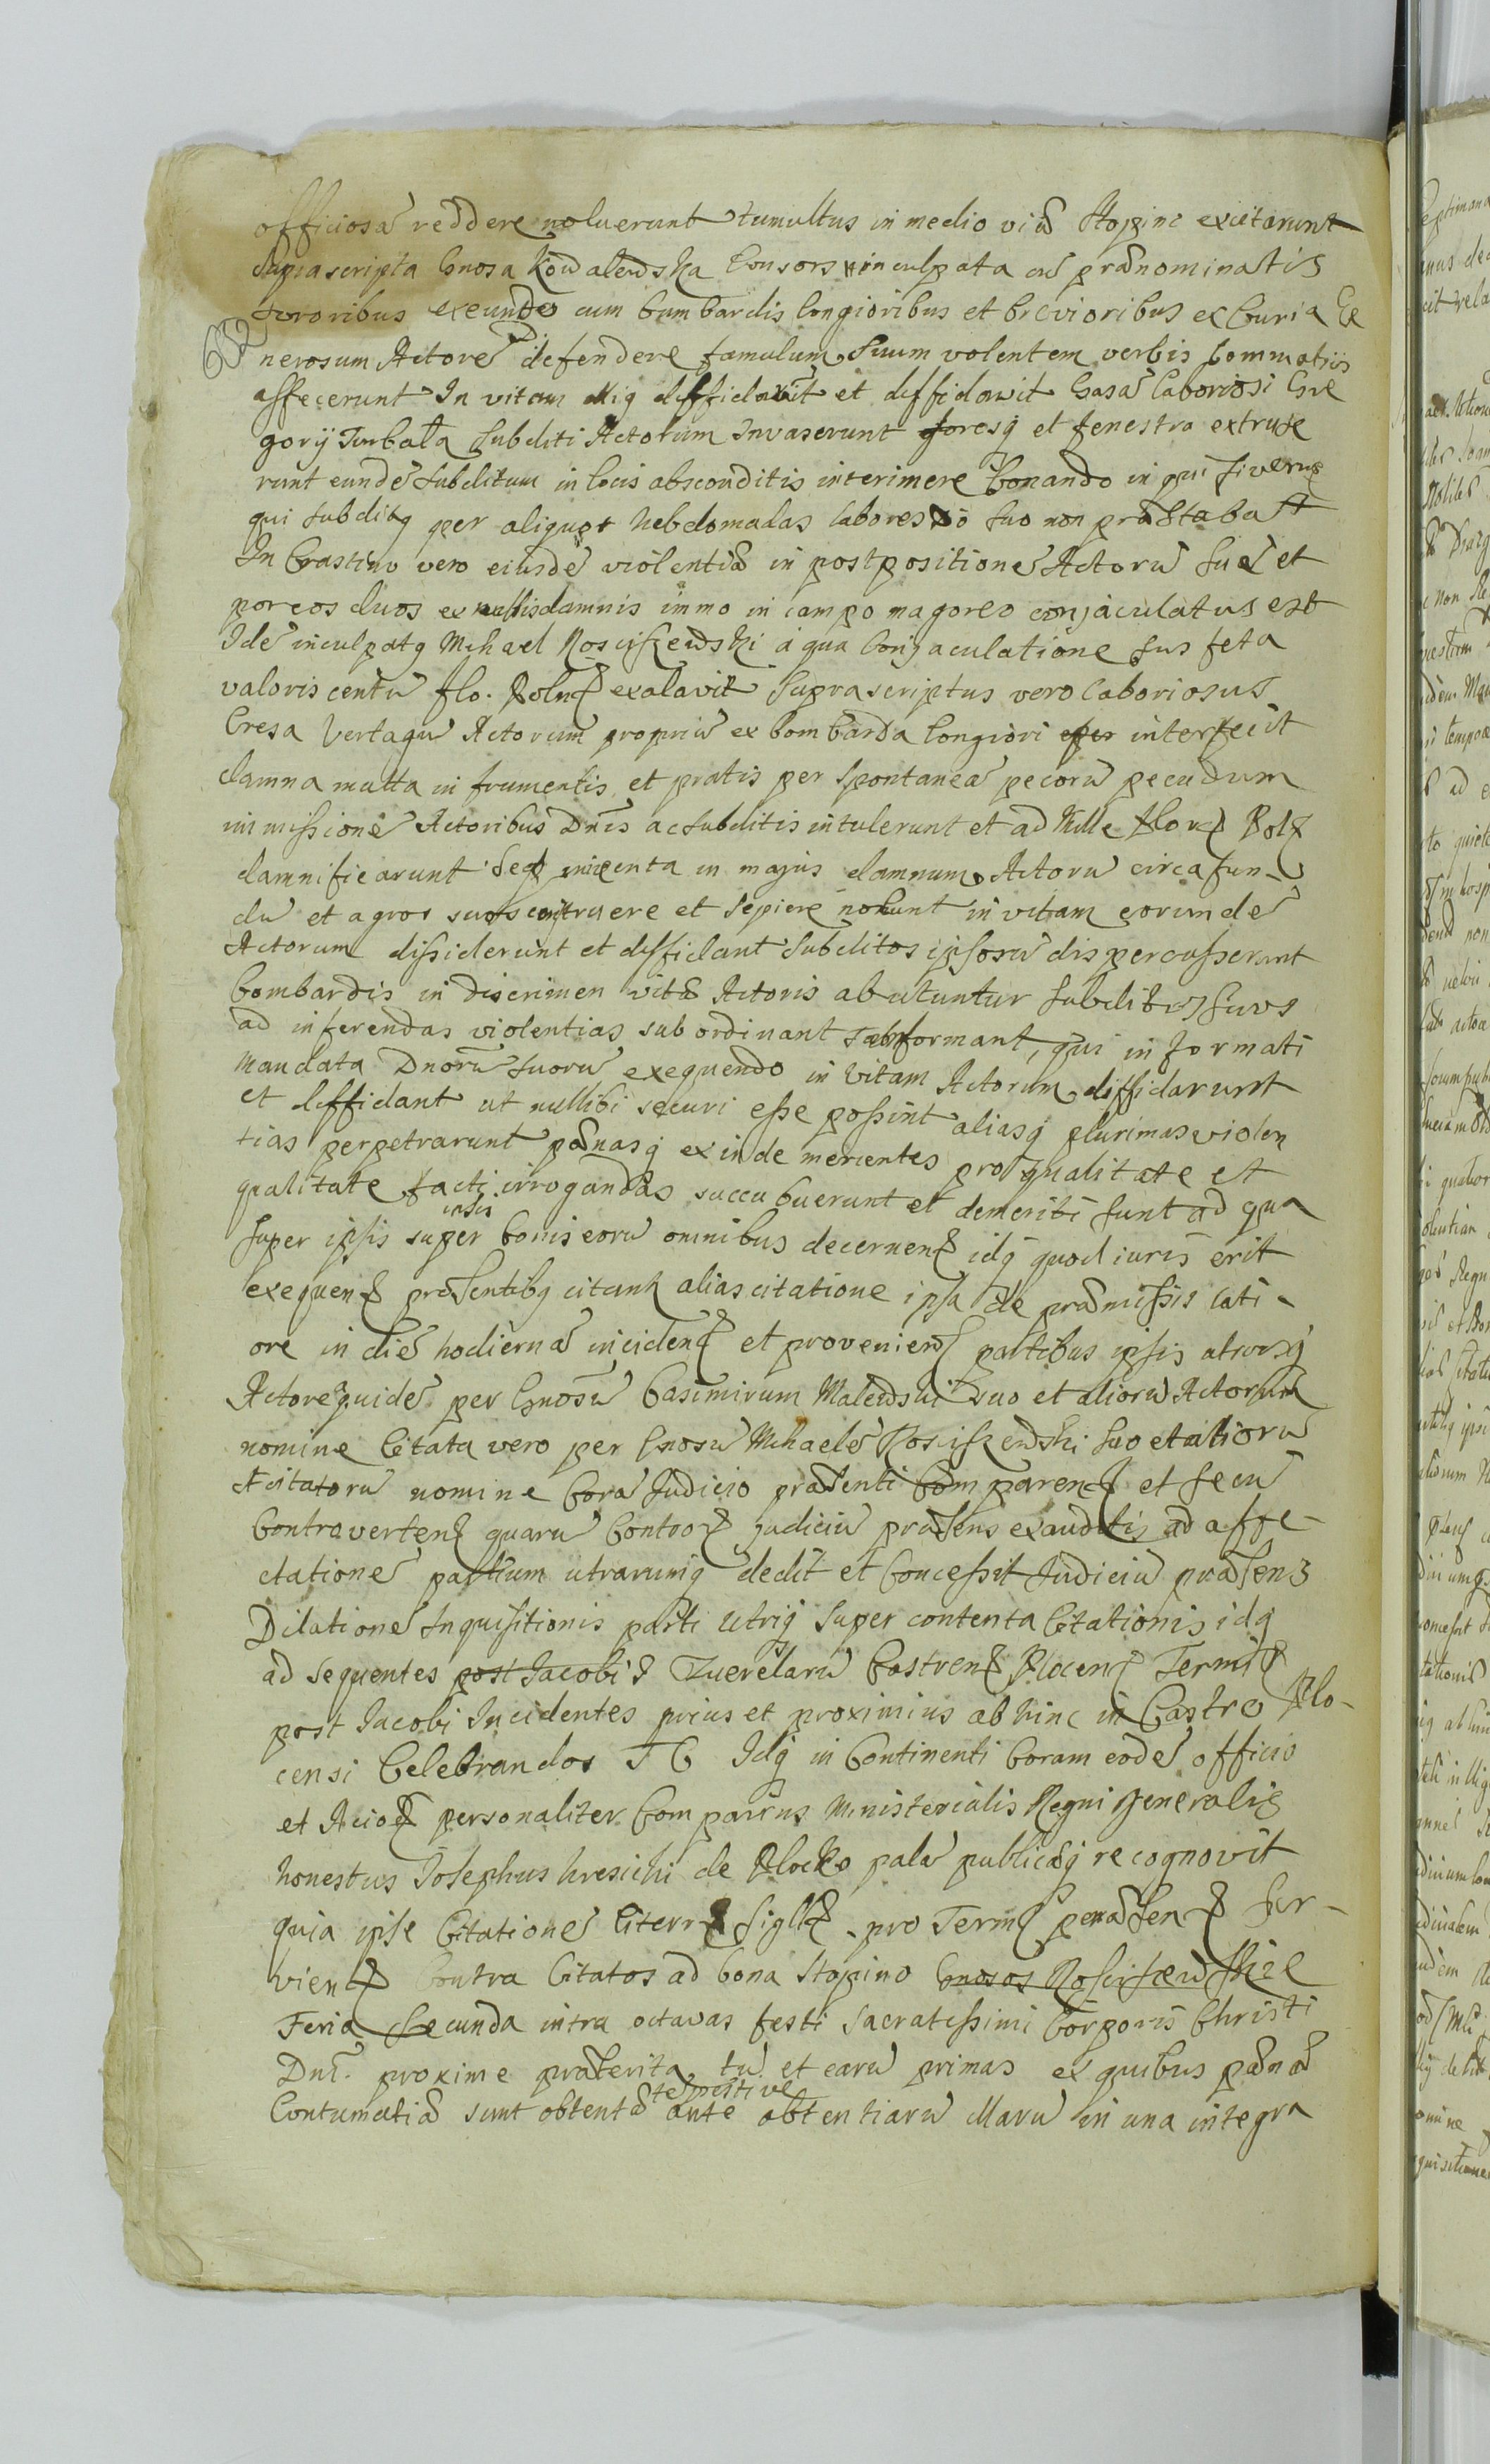 officiosã reddere noluerunt tumultus in medio viæ Stopine excitarunt
Suprascripta Gnosa Kowalewska Consors inculpata cũ prænominatis
Sororibus exeundo cum bumbardis longioribus et brevioribus ex Curia Ge
nerosum Actorẽ defendere famulum suum volentem verbis Commotiis
affecerunt In vitam diffidavit et diffidavit Casã laboriosi Gre
gorij Turbała subditi Actorum Invaserunt foresq et fenestra extruse
runt eundẽ subditum in locis absconditis interimere Conando inquisiverunt
qui subditq per aliquot hebdomadas labores Dõ suo non præstabat
In Crastino vero eiusdẽ violentiæ in postpositionẽ Actorũ suẽ et
porcos duos ex nullis damnis immo in campo magoreo conjaculatus est
Idẽ inculpatq Michael Rosciszewski a qua Conjaculatione sus feta
valoris centũ flo. Poln exalavit Suprascriptus vero laboriosus
Cresa Vertagũ Actorum propriũ ex bombarda longiori interfecit
damna multa in frumentis et pratis per spontaneã pecorũ pecudum
immissionẽ Actoribus Dnis ac subditis intulerunt et ad Mille Flor Pol
damnificarunt Sep in majus damnum Actorũ circa fun-
dũ et agros suos construere et sepire nolunt in vitam eorundẽ
Actorum dissiderunt et diffidant subditos ipsorũ dispercusserunt
bombardis in discrimen vitæ Actoris abutuntur subditos suos
ad inferendas violentias subordinant informant, qui informati
mandata Dnorũ suorũ exequendo in vitam Actorum diffidarunt
et diffidant ut nullibi securi esse possint aliasq plurimas violen
tias perpetrarunt pænasq exinde merentes pro qualitate et
qualitate facti irrogandas succubuerunt et demeriti sunt ad quã
super ipsis super bonis eorũ omnibus decernen idq quod iuris erit
exequen præsentibq citant alias citatione ipsa de præmissis lati-
ore in diẽ hodiernã inciden et provenien partibus ipsis utrisq
Actorẽ quidẽ per Gnosũ Casimirum Malewski suo et aliorũ Actorum
nomine Citata vero per Gnosũ Michaelẽ Rosciszewski suo et aliorũ
Citatorũ nomine Corã Judicio præsenti Comparen et secũ
Controverten quarũ Contro judiciũ præsens exauditis ad affe-
ctationẽ partium utrarumq dedit et Concessit Judiciũ præsens
Dilationẽ Inquisitionis parti Utriq super contenta Citationis idq
ad sequentes post Jacobi Querelarũ Castren Plocen Termi
post Jacobi Incidentes prius et proximius ab hinc in Castro Plo-
censi Celebrandos T C Idq in Continenti Coram eodẽ officio
et Acio personaliter Comparens Ministerialis Regni generalis
honestus Josephus kresicki de Plocko palã publiceq recognovit
quia ipse Citationẽ literr sigll pro Term præsen ser-
vien Contra Citatos ad bona Stopino Gnosos Rosciszewskie
Feria Secunda intra octavas festi sacratissimi Corporis Christi
Dni. proxime præterita tũ et earũ primas ex quibus pæna
Contumatiæ sunt obtentæ ante obtentiarũ illarũ in una integra